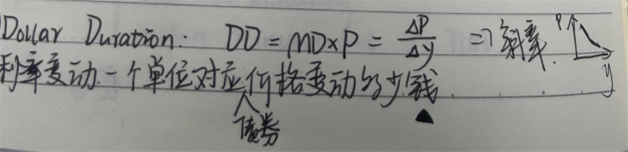 Dollar Duration: DD = MD×P = ΔP/Δy => 斜率. P y
利率变动一个单位对应价格变动多少钱
债券